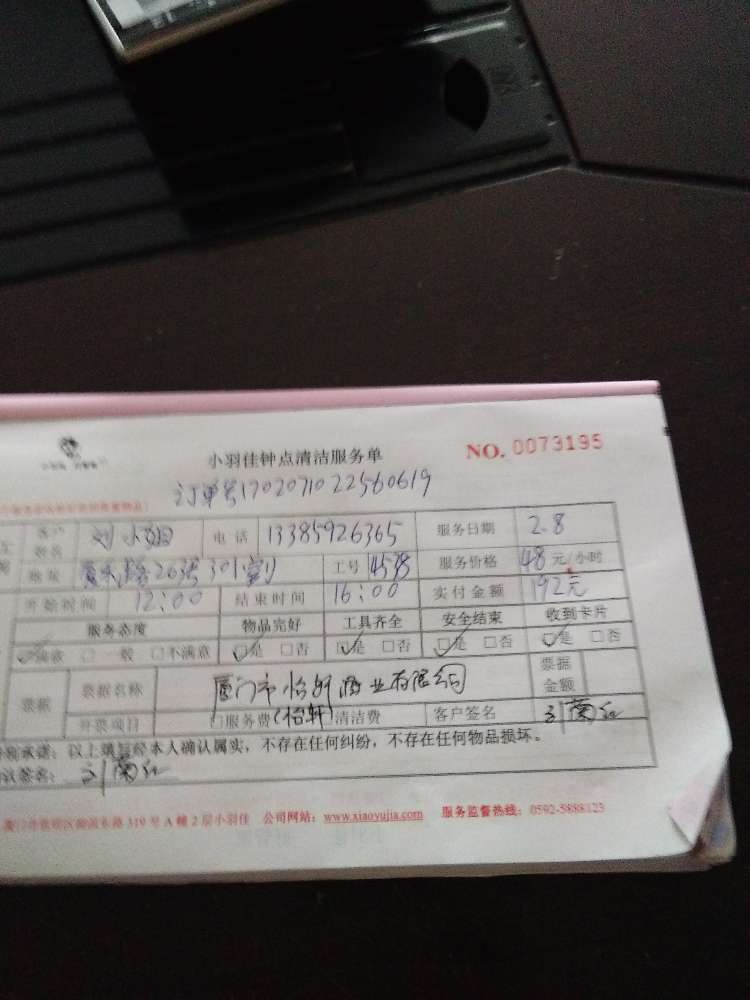 小羽佳钟点清洁服务单 NO. 0073195
订单号1702071022560619
客户姓名 刘小姐 电话 13385926365 服务日期 2.8
地址 263号301室 工号 4538 服务价格 48元/小时
开始时间 12:00 结束时间 16:00 实付金额 192元
服务态度 物品完好 工具齐全 安全结束 收到卡片
☑满意 □一般 □不满意 ☑是 □否 ☑是 □否 ☑是 □否 ☑是 □否
票据 票据名称 厦门市怡轩酒业有限公司 票据金额
开票项目 □服务费(怡轩)清洁费 客户签名 刘菊红
承诺：以上填写经本人确认属实，不存在任何纠纷，不存在任何物品损坏。
签名：刘菊红
路 319 号 A 幢 2 层小羽佳 公司网站：www.xiaoyujia.com 服务监督热线：0592-5888123